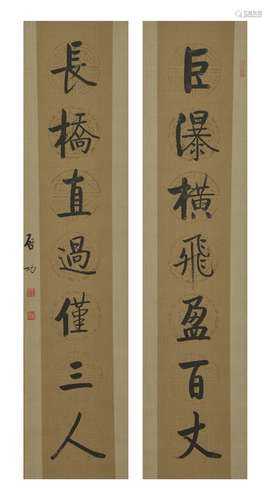 臣瀑橫飛盈百丈
長橋直過僅三人
啓功